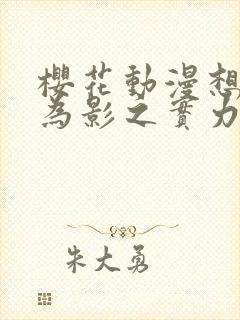 櫻花動漫想
為影之實力
朱大勇